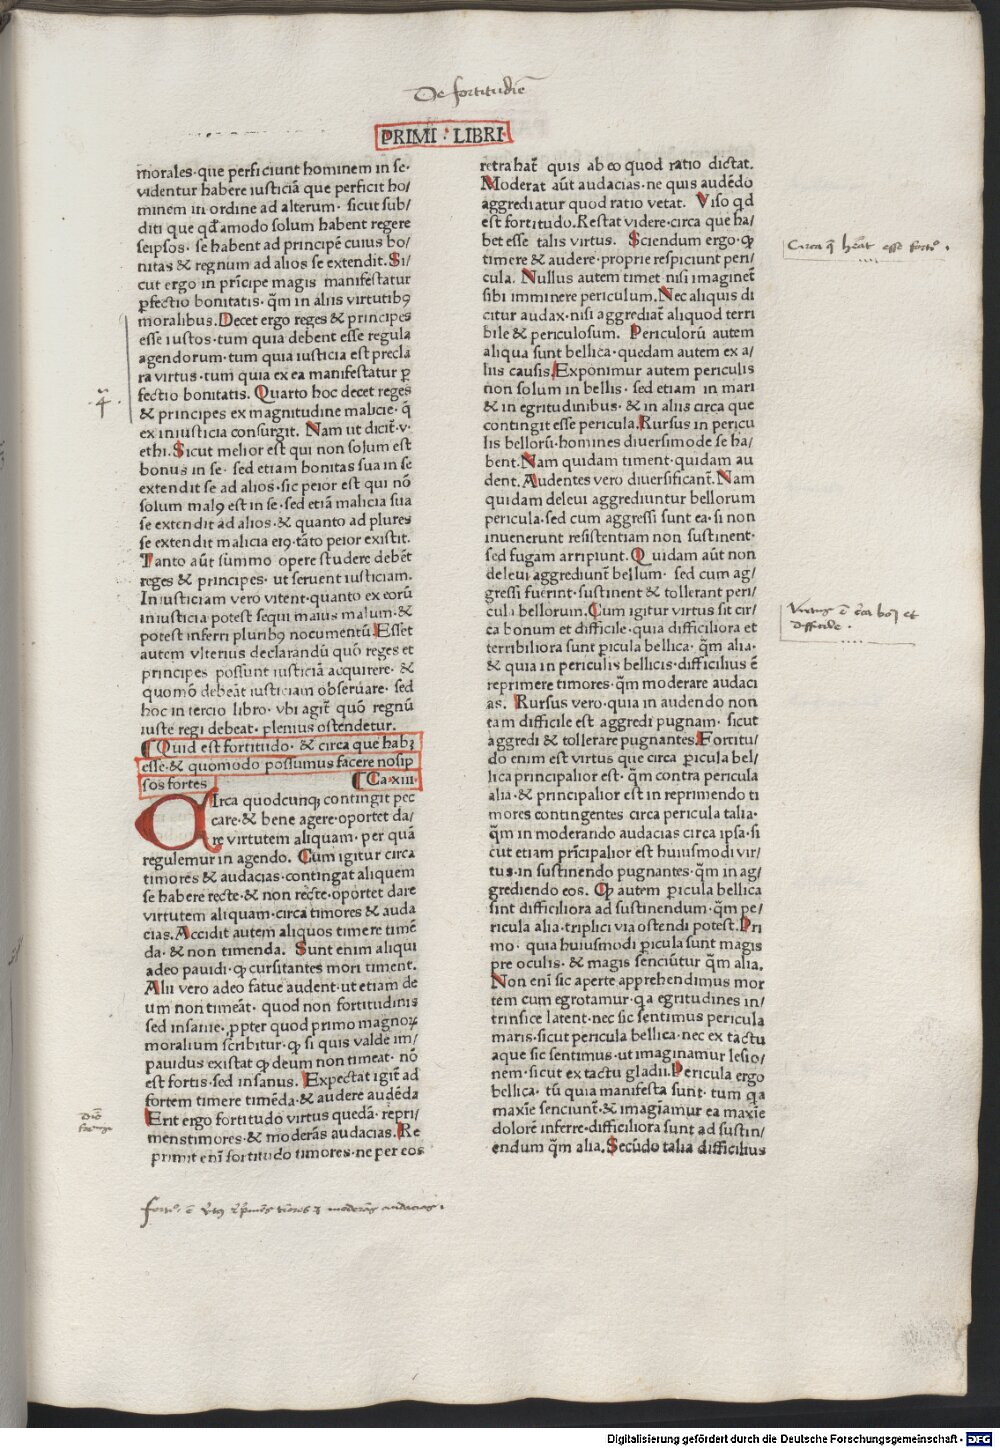 De fortitudīe
PRIMI · LIBRI ·
morales· que perficiunt hominem in se·
videntur habere iusticiā que perficit ho/
minem in ordine ad alterum· sicut sub/
diti que qd̄amodo solum habent regere
seipsos· se habent ad principē cuius bo/
nitas & regnum ad alios se extendit. Si/
cut ergo in prīcipe magis manifestatur
ꝑfectio bonitatis· q̄m in aliis virtutibꝰ
moralibus. Decet ergo reges & principes
esse iustos· tum quia debent esse regula
agendorum· tum quia iusticia est precla
ra virtus· tum quia ex ea manifestatur ꝑ
fectio bonitatis. Quarto hoc decet reges
& principes ex magnitudine malicie· q̄
ex iniusticia consurgit. Nam ut dicit̄· v·
ethi. Sicut melior est qui non solum est
bonus in se· sed etiam bonitas sua in se
extendit se ad alios· sic peior est qui nō
solum malꝰ est in se· sed etiā malicia sua
se extendit ad alios· & quanto ad plures
se extendit malicia eiꝰ· tāto peior existit.
Tanto aūt sūmmo opere studere debēt
reges & principes· ut seruent iusticiam.
Iniusticiam vero vitent· quanto ex eorū
iniusticia potest sequi maius malum· &
potest inferri pluribꝰ nocumentū. Esset
autem vlterius declarandū quō reges et
principes possunt iusticiā acquirere· &
quomō debeāt iusticiam obseruare· sed
hoc in tercio libro· vbi agit̄ quō regnū
iuste regi debeat· plenius ostendetur.
¶ Quid est fortitudo· & circa que habꝫ
esse· & quomodo possumus facere nosip
sos fortes ¶ Ca·xiii·
CIrca quodcunqꝫ contingit pec
care· & bene agere· oportet da/
re virtutem aliquam· per quā
regulemur in agendo. Cum igitur circa
timores & audacias· contingat aliquem
se habere recte· & non recte· oportet dare
virtutem aliquam· circa timores & auda
cias. Accidit autem aliquos timere timē
da· & non timenda. Sunt enim aliqui
adeo pauidi· ꝙ cursitantes mori timent.
Alii vero adeo fatue audent· ut etiam de
um non timeāt· quod non fortitudinis
sed insanie· ꝓpter quod primo magnoꝝ
moralium scribitur· ꝙ si quis valde im/
pauidus existat ꝙ deum non timeat· nō
est fortis· sed insanus. Expectat igit̄ ad
fortem timere timēda· & audere audēda
Erit ergo fortitudo virtus quedā· repri/
mens timores· & moderās audacias. Re
primit enī fortitudo timores· ne per eos
retrahat̄ quis ab eo quod ratio dictat.
Moderat aūt audacias· ne quis audēdo
aggrediatur quod ratio vetat. Viso qd
est fortitudo. Restat videre· circa que ha/
bet esse talis virtus. Sciendum ergo· ꝙ
timere & audere· proprie respiciunt peri/
cula. Nullus autem timet· nisi imaginet̄
sibi imminere periculum. Nec aliquis di
citur audax· nisi aggrediat̄ aliquod terri
bile & periculosum. Periculorū autem
aliqua sunt bellica· quedam autem ex a/
liis causis. Exponimur autem periculis
non solum in bellis· sed etiam in mari
& in egritudinibus· & in aliis circa que
contingit esse pericula. Rursus in pericu
lis bellorū· homines diuersimode se ha/
bent. Nam quidam timent· quidam au
dent. Audentes vero diuersificant̄. Nam
quidam deleui aggrediuntur bellorum
pericula· sed cum aggressi sunt ea· si non
inuenerunt resistentiam non sustinent·
sed fugam arripiunt. Quidam aūt non
deleui aggrediunt̄ bellum· sed cum ag/
gressi fuerint· sustinent & tollerant peri/
cula bellorum. Cum igitur virtus sit cir/
ca bonum et difficile· quia difficiliora et
terribiliora sunt ꝑicula bellica· q̄m alia·
& quia in periculis bellicis· difficilius ē
reprimere timores· q̄m moderare audaci
as. Rursus vero· quia in audendo non
tam difficile est aggredi pugnam· sicut
aggredi & tollerare pugnantes. Fortitu/
do enim est virtus que circa ꝑicula bel/
lica principalior est· q̄m contra pericula
alia· & principalior est in reprimendo ti
mores contingentes circa pericula talia·
q̄m in moderando audacias circa ipsa· si
cut etiam prīcipalior est huiusmodi vir/
tus· in sustinendo pugnantes· q̄m in ag/
grediendo eos. Ꝙ autem ꝑicula bellica
sint difficiliora ad sustinendum· q̄m pe/
ricula alia· triplici via ostendi potest. Pri
mo· quia huiusmodi ꝑicula sunt magis
pre oculis· & magis senciūtur q̄m alia.
Non enī sic aperte apprehendimus mor
tem cum egrotamur· q̄a egritudines in/
trinsice latent· nec sic sentimus pericula
maris· sicut pericula bellica· nec ex tactu
aque sic sentimus· ut imaginamur lesio/
nem· sicut ex tactu gladii. Pericula ergo
bellica· tū quia manifesta sunt· tum q̄a
maxīe senciunt· & imagīamur ea maxīe
dolorē inferre· difficiliora sunt ad sustin/
endum q̄m alia. Secūdo talia difficilius
Circa q̄ hēat esse fortᵒ.
Virtus ē circa boꝫ et
difficile.
4
fortᵒ· ē v̄tꝰ rp̄mēs timores ⁊ moderās audacias.
Digitalisierung gefördert durch die Deutsche Forschungsgemeinschaft - DFG